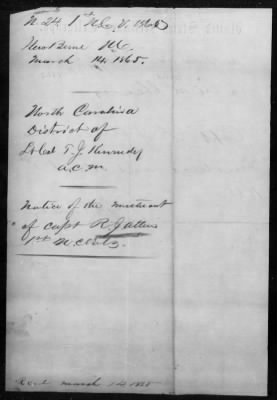 N. 24. 1st N.C. V. 1865
New Berne N.C.
March 14. 1865.
North Carolina
District of
Lt Col T. J. Kennedy
a.c.m.
Notice of the
of Capt R.
1st N.C. Vols.
Recd March 14 1865